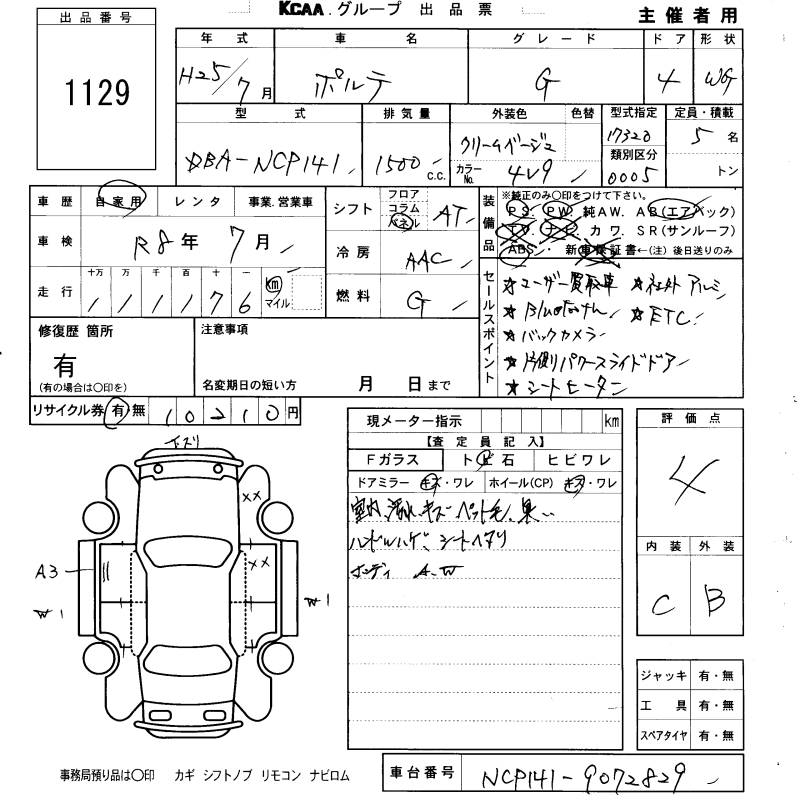 KCAA グループ 出品票
主催者用
出品番号
1129
年式 車名 グレード ドア 形状
H25/7月 ポルテ G 4 WG
型式 排気量 外装色 色替 型式指定 定員・積載
DBA-NCP141 1500 C.C. クリームベージュ 17320 5名
カラーNo. 4V9 類別区分 0005 トン
車歴 自家用 レンタ 事業.営業車
シフト フロア コラム パネル AT
装備品 ※純正のみ〇印をつけて下さい。
PS. PW. 純AW. AB(エアバック)
TV ナビ カワ. SR(サンルーフ)
ABS 新車保証書←(注)後日送りのみ
車検 R8年7月
冷房 AAC
走行 十万 万 千 百 十 一 km マイル
76
燃料 G
セールスポイント
★ユーザー買取車 ★社外アルミ
★Bluetooth ★ETC
★バックカメラ
★片側パワースライドドア
★シートヒーター
修復歴 箇所
有
(有の場合は〇印を)
注意事項
名変期日の短い方 月 日まで
リサイクル券 有 無 10210円
現メーター指示 km
【査定員記入】
Fガラス ト ビ 石 ヒビワレ
ドアミラー キズ・ワレ ホイール(CP) キズ・ワレ
室内汚れ キズ ペット毛、臭
ハンドルハゲ、シートヘタリ
ボディ A.W
評価点
4
内装 外装
C B
XX
XX
A3
W1
W1
ジャッキ 有・無
工具 有・無
スペアタイヤ 有・無
事務局預り品は〇印 カギ シフトノブ リモコン ナビロム
車台番号 NCP141-9072829